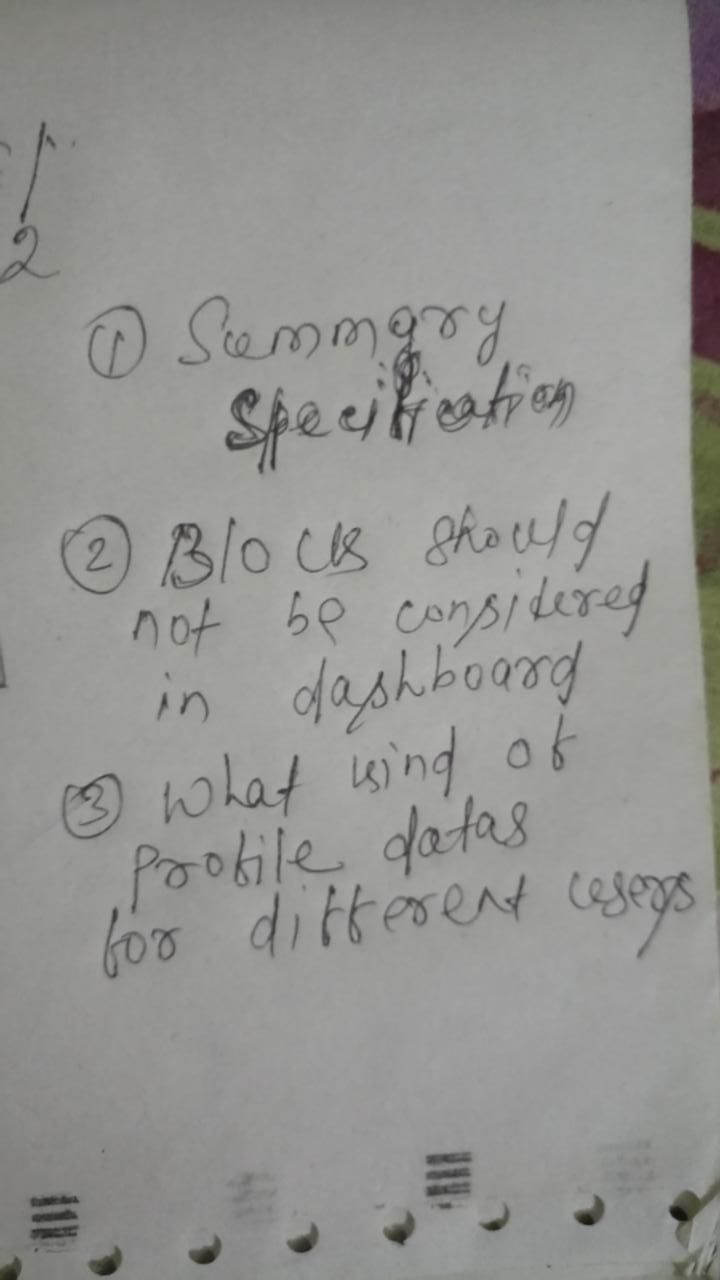 2
① Summary
Specification
② Blocks should
not be considered
in dashboard
③ What kind of
profile datas
for different users